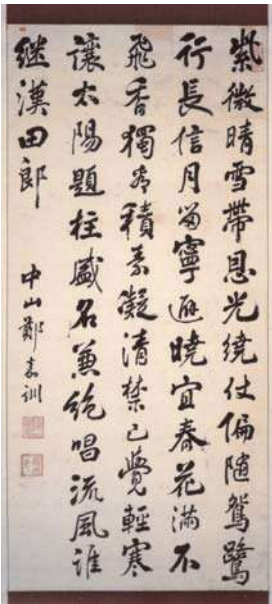 紫微晴雪帶恩光繞仗偏隨鴛鷺
行長信月留寧避曉宜春花滿不
飛香獨看積素凝清禁已覺輕寒
讓太陽題柱盛名兼絕唱流風誰
継漢田郎
中山鄭嘉訓